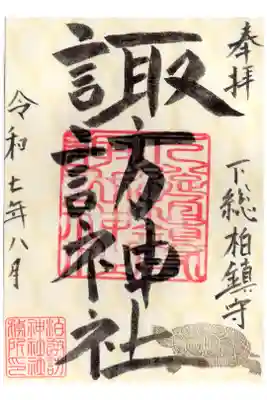 奉拝
下総柏鎮守
諏方神社
諏訪神社
令和七年八月
柏諏訪
神社社
務所印